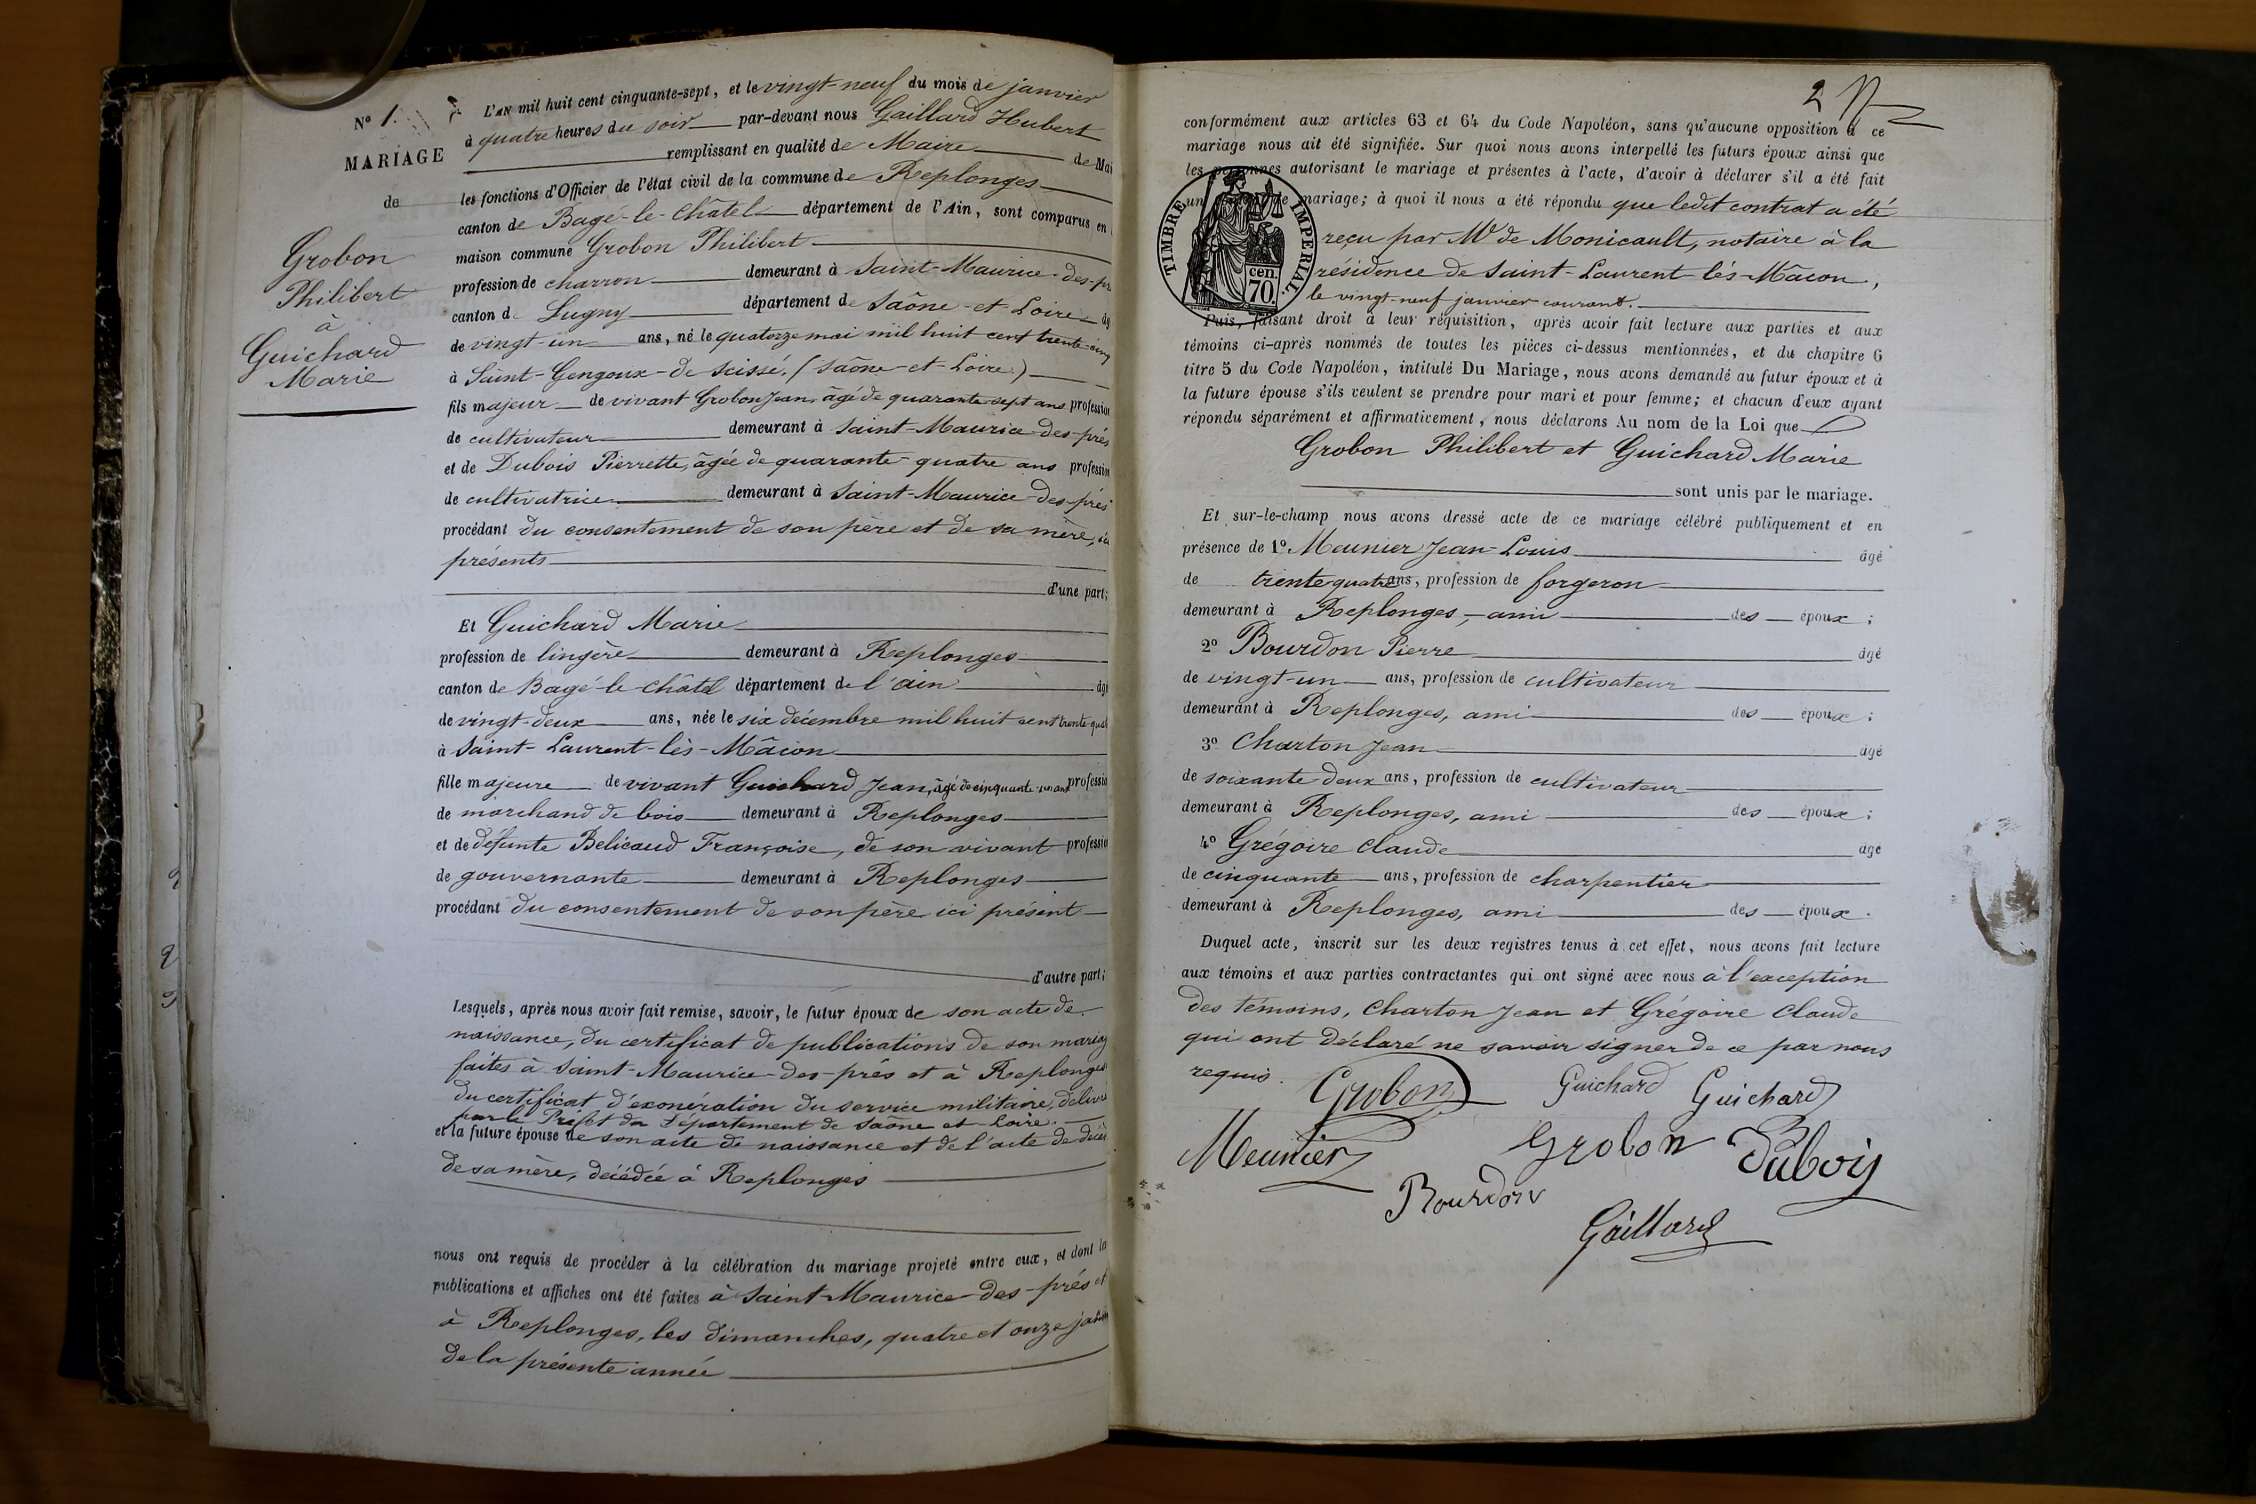 N° 1.
MARIAGE
de
Grobon
Philibert
à
Guichard
Marie
L'AN mil huit cent cinquante-sept, et le vingt-neuf du mois de janvier
à quatre heures du soir par-devant nous Gaillard Hubert
remplissant en qualité de Maire de Mai
les fonctions d'Officier de l'état civil de la commune de Replonges
canton de Bagé-le-Châtel département de l'Ain, sont comparus en
maison commune Grobon Philibert
profession de charron demeurant à Saint-Maurice-des-pr
canton d. Lugny département de Saône-et-Loire âg
de vingt-un ans, né le quatorze mai mil huit cent trente-cinq
à Saint-Gengoux-de-Scissé, (Saône-et-Loire)
fils majeur de vivant Grobon Jean, âgé de quarante-sept ans profession
de cultivateur demeurant à Saint-Maurice-des-prés
et de Dubois Pierrette, âgée de quarante-quatre ans profession
de cultivatrice demeurant à Saint-Maurice-des-prés
procédant du consentement de son père et de sa mère, ici
présents
d'une part;
Et Guichard Marie
profession de lingère demeurant à Replonges
canton de Bagé-le-châtel département de l'ain âgé
de vingt-deux ans, née le six décembre mil huit cent trente-quat
à Saint-Laurent-lès-Mâcon
fille majeure de vivant Guichard Jean, âgé de cinquante-un ans profession
de marchand de bois demeurant à Replonges
et de défunte Belicaud Françoise, de son vivant profession
de gouvernante demeurant à Replonges
procédant du consentement de son père ici présent
d'autre part;
Lesquels, après nous avoir fait remise, savoir, le futur époux de son acte de
naissance, du certificat de publications de son mariag
faites à Saint-Maurice-des-prés et à Replonges
du certificat d'exonération du service militaire, délivré
par le Préfet du département de Saône et Loire.
et la future épouse de son acte de naissance et de l'acte de décès
de sa mère, décédée à Replonges
nous ont requis de procéder à la célébration du mariage projeté entre eux, et dont la
publications et affiches ont été faites à Saint-Maurice-des-prés et
à Replonges, les dimanches, quatre et onze janvier
de la présente année
2
conformément aux articles 63 et 64 du Code Napoléon, sans qu'aucune opposition à ce
mariage nous ait été signifiée. Sur quoi nous avons interpellé les futurs époux ainsi que
les personnes autorisant le mariage et présentes à l'acte, d'avoir à déclarer s'il a été fait
un de mariage; à quoi il nous a été répondu que ledit contrat a été
reçu par Me de Monicault, notaire à la
résidence de Saint-Laurent-lès-Mâcon,
le vingt-neuf janvier courant.
TIMBRE IMPERIAL.
cen.
70.
Puis, faisant droit à leur réquisition, après avoir fait lecture aux parties et aux
témoins ci-après nommés de toutes les pièces ci-dessus mentionnées, et du chapitre 6
titre 5 du Code Napoléon, intitulé Du Mariage, nous avons demandé au futur époux et à
la future épouse s'ils veulent se prendre pour mari et pour femme; et chacun d'eux ayant
répondu séparément et affirmativement, nous déclarons Au nom de la Loi que
Grobon Philibert et Guichard Marie
sont unis par le mariage.
Et sur-le-champ nous avons dressé acte de ce mariage célébré publiquement et en
présence de 1° Meunier Jean-Louis âgé
de trente quatre ans, profession de forgeron
demeurant à Replonges, ami des époux;
2° Bourdon Pierre âgé
de vingt-un ans, profession de cultivateur
demeurant à Replonges, ami des époux;
3° Charton Jean âgé
de soixante-deux ans, profession de cultivateur
demeurant à Replonges, ami des époux;
4° Grégoire Claude âgé
de cinquante ans, profession de charpentier
demeurant à Replonges, ami des époux.
Duquel acte, inscrit sur les deux registres tenus à cet effet, nous avons fait lecture
aux témoins et aux parties contractantes qui ont signé avec nous à l'exception
des témoins, Charton Jean et Grégoire Claude
qui ont déclaré ne savoir signer de ce par nous
requis.
Grobon Guichard Guichard
Meunier Grobon Dubois
Bourdon
Gaillard